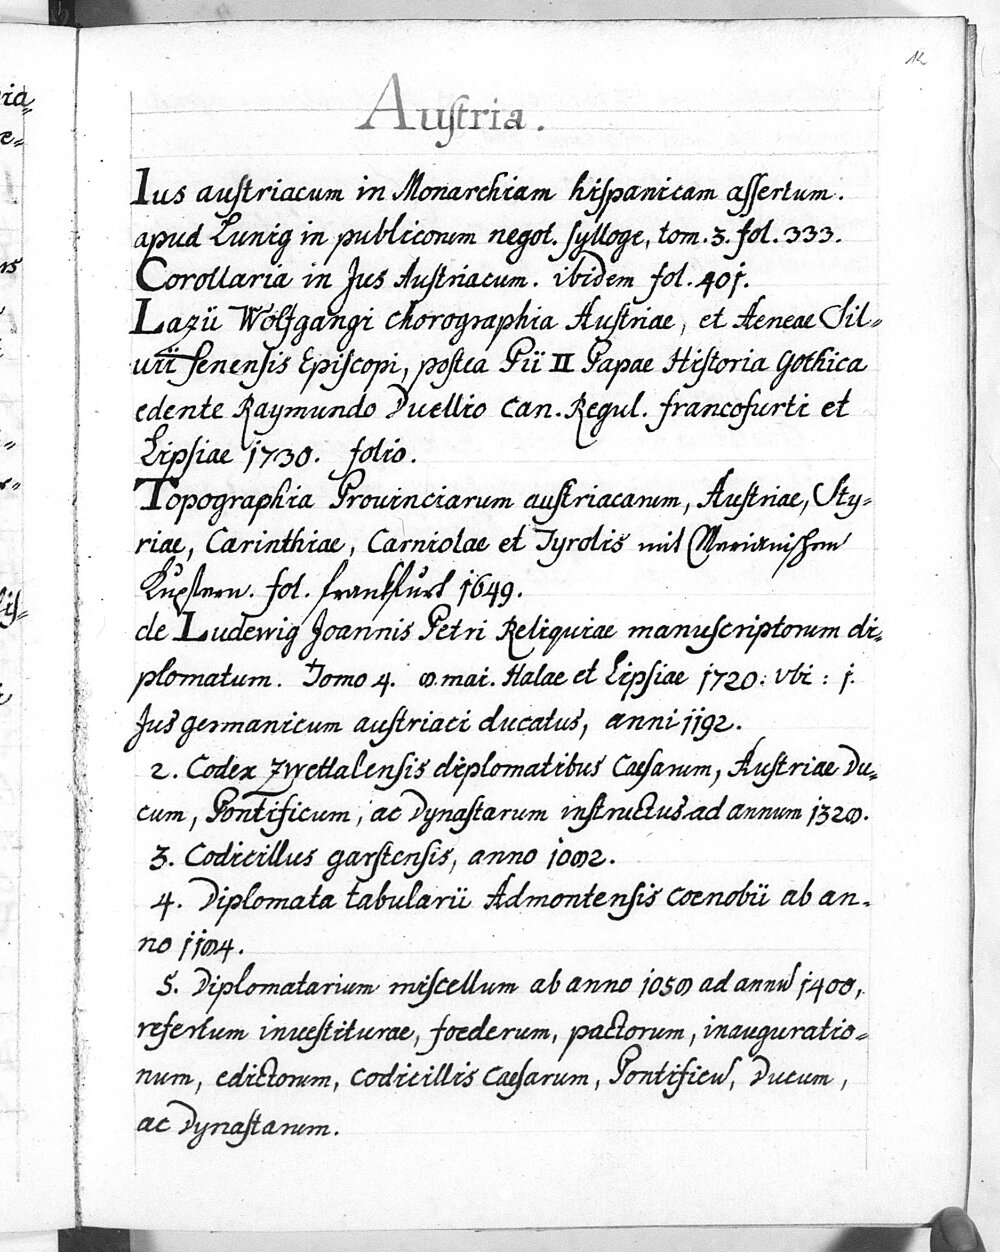 12
Austria.
Ius austriacum in Monarchiam hispanicam assertum.
apud Lunig in publicorum negot. sylloge, tom. 3. fol. 333.
Corollaria in Jus Austriacum. ibidem fol. 401.
Lazii Wolfgangi Chorographia Austriae, et Aeneae Sil-
uii Senensis Episcopi, postea Pii II Papae Historia Gothica
edente Raymundo Duellio Can. Regul. francofurti et
Lipsiae 1730. folio.
Topographia Prouinciarum austriacarum, Austriae, Sty-
riae, Carinthiae, Carniolae et Tyrolis mit Merianischen
Kupfern. fol. frankfurt 1649.
de Ludewig Joannis Petri Reliquiae manuscriptorum di-
plomatum. Tomo 4. 8 mai. Halae et Lipsiae 1720. vbi : 1.
Jus germanicum austriaci ducatus, anni 1192.
2. Codex Zwetlalensis diplomatibus Caesarum, Austriae Du-
cum, Pontificum, ac Dynastarum instructus ad annum 1328.
3. Codicillus garstensis, anno 1082.
4. Diplomata tabularii Admontensis Coenobii ab an-
no 1184.
5. Diplomatarium miscellum ab anno 1058 ad annū 1400,
refertum inuestiturae, foederum, pactorum, inauguratio-
num, edictorum, codicillis Caesarum, Pontificū, Ducum,
ac Dynastarum.